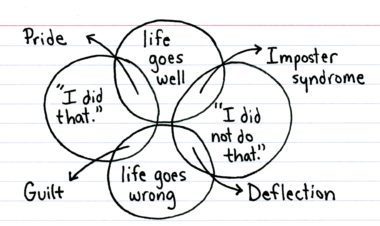 Pride
life
goes
well
Imposter
syndrome
"I did
that."
"I did
not do
that."
Guilt
life goes
wrong
Deflection